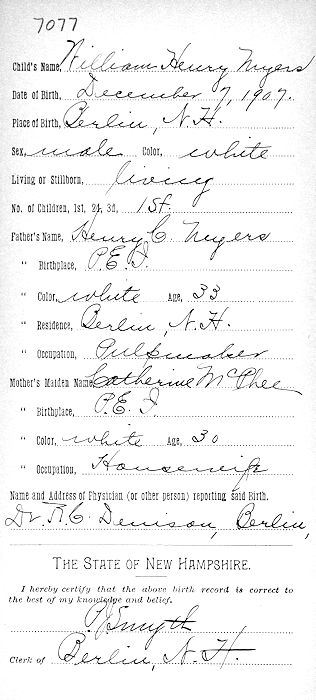 7077
Child's Name, William Henry Myers
Date of Birth, December 7, 1907.
Place of Birth, Berlin, N.H.
Sex, male Color, white
Living or Stillborn, living
No. of Children, 1st, 2d, 3d, 1st.
Father's Name, Henry C. Myers
" Birthplace, P.E.I.
" Color, white Age, 33
" Residence, Berlin, N.H.
" Occupation, Pulpmaker
Mother's Maiden Name, Catherine McPhee
" Birthplace, P.E.I.
" Color, white Age, 30
" Occupation, Housewife
Name and Address of Physician (or other person) reporting said Birth.
Dr. R.C. Denison, Berlin,
THE STATE OF NEW HAMPSHIRE.
I hereby certify that the above birth record is correct to
the best of my knowledge and belief.
Smyth
Clerk of Berlin, N.H.